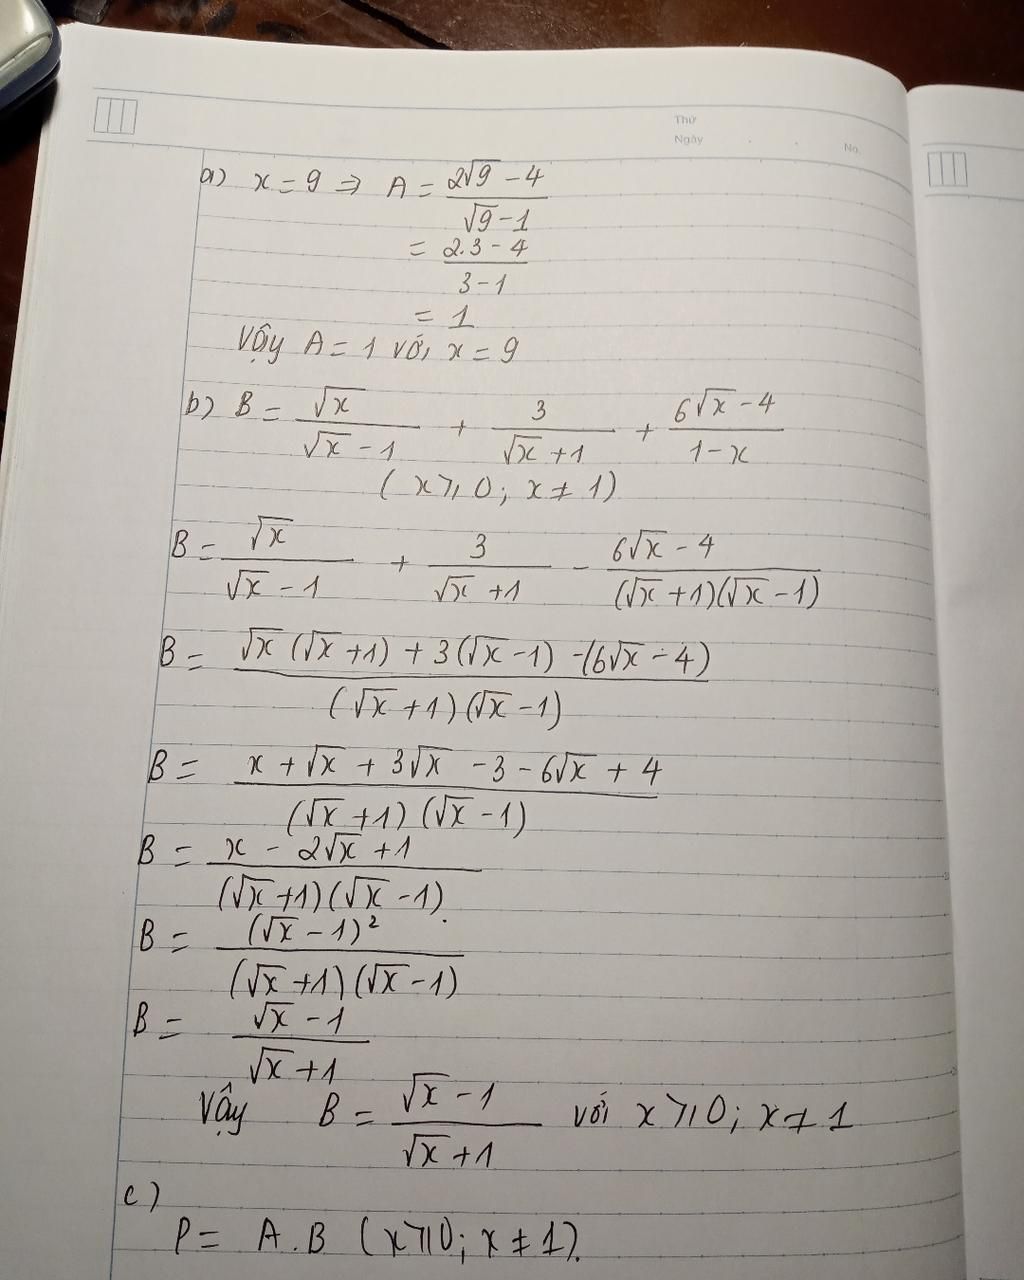 Thứ
Ngày
No.
a) x = 9 ⇒ A = (2√9 - 4)/(√9 - 1)
= (2.3 - 4)/(3 - 1)
= 1
Vậy A = 1 với x = 9
b) B = √x/(√x - 1) + 3/(√x + 1) + (6√x - 4)/(1 - x)
(x ⩾ 0; x ≠ 1)
B = √x/(√x - 1) + 3/(√x + 1) - (6√x - 4)/((√x + 1)(√x - 1))
B = (√x (√x + 1) + 3(√x - 1) - (6√x - 4))/((√x + 1)(√x - 1))
B = (x + √x + 3√x - 3 - 6√x + 4)/((√x + 1)(√x - 1))
B = (x - 2√x + 1)/((√x + 1)(√x - 1))
B = (√x - 1)²/((√x + 1)(√x - 1))
B = (√x - 1)/(√x + 1)
Vậy B = (√x - 1)/(√x + 1) với x ⩾ 0; x ≠ 1
c)
P = A.B (x ⩾ 0; x ≠ 1).